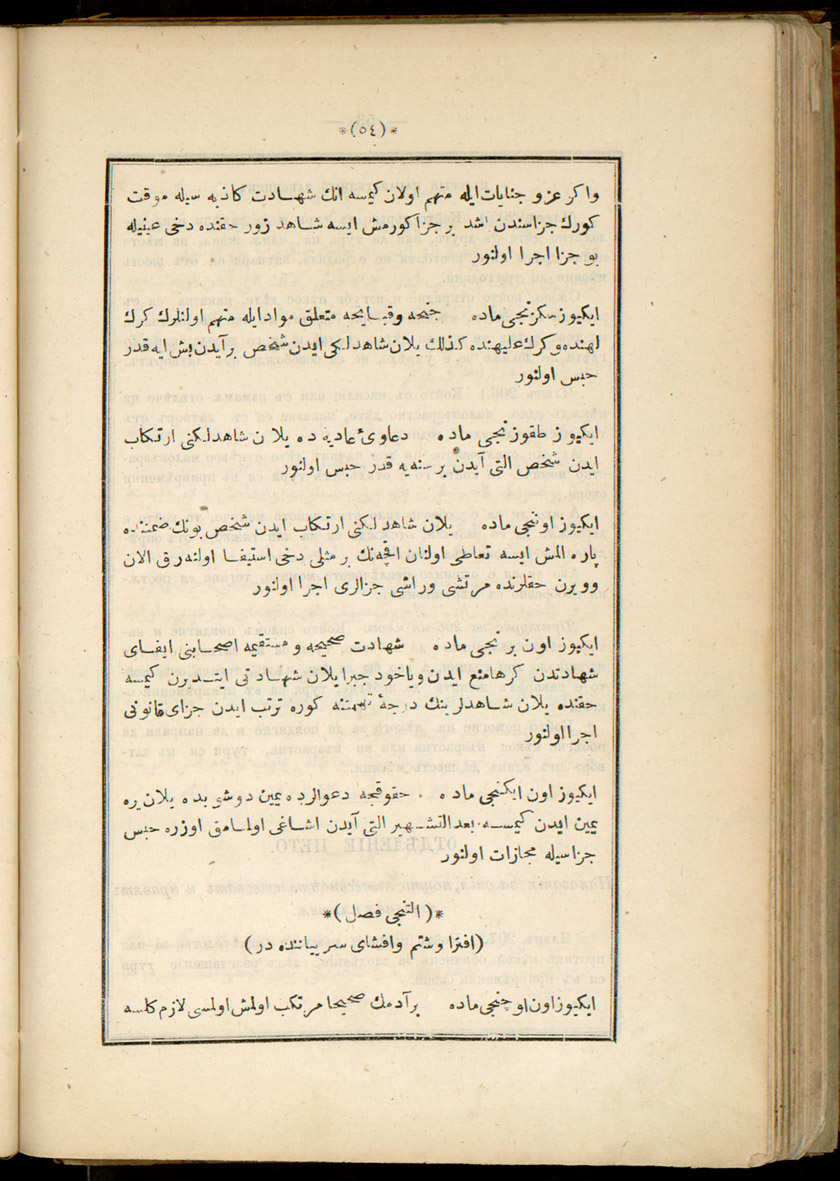 *(٥٤)*
واكر عزو جنايات ايله متهم اولان كيمسه انك شهادت كاذبه سيله موقت
كورك جزاسندن اشد بر جزا كورمش ايسه شاهد زور حقنده دخى عينيله
بو جزا اجرا اولنور
ايكيوز سكزنجى ماده جنحه وقبايحه متعلق موادايله متهم اولنلرك كرك
لهنده وكرك عليهنده كذلك يلان شاهدلكى ايدن شخص بر آيدن بش ايه قدر
حبس اولنور
ايكيوز طقوزنجى ماده دعاوئ عاديه ده يلان شاهدلكنى ارتكاب
ايدن شخص التى آيدن بر سنه يه قدر حبس اولنور
ايكيوز اوننجى ماده يلان شاهدلكنى ارتكاب ايدن شخص بونك ضمننده
پاره المش ايسه تعاطى اولنان اقچه نك بر مثلى دخى استيفا اولنه رق الان
وويرن حقلرنده مرتشى وراشى جزالرى اجرا اولنور
ايكيوز اون برنجى ماده شهادت صحيحه و مستقيمه اصحابنى ايفاى
شهادتدن كرها منع ايدن وياخود جبرا يلان شهادتى ايتديرن كيمسه
حقنده يلان شاهدلرينك درجهٔ تهمتنه كوره ترتب ايدن جزاى قانونى
اجرا اولنور
ايكيوز اون ايكنجى ماده حقوقجه دعوالرده يمين دوشوبده يلان يره
يمين ايدن كيمسه بعد التشهير التى آيدن اشاغى اولمامق اوزره حبس
جزاسيله مجازات اولنور
*(التنجى فصل)*
(افترا وشتم وافشاى سر بياننده در)
ايكيوز اون اوچنجى ماده بر آدمك صحيحا مرتكب اولمش اولمسى لازم كلسه